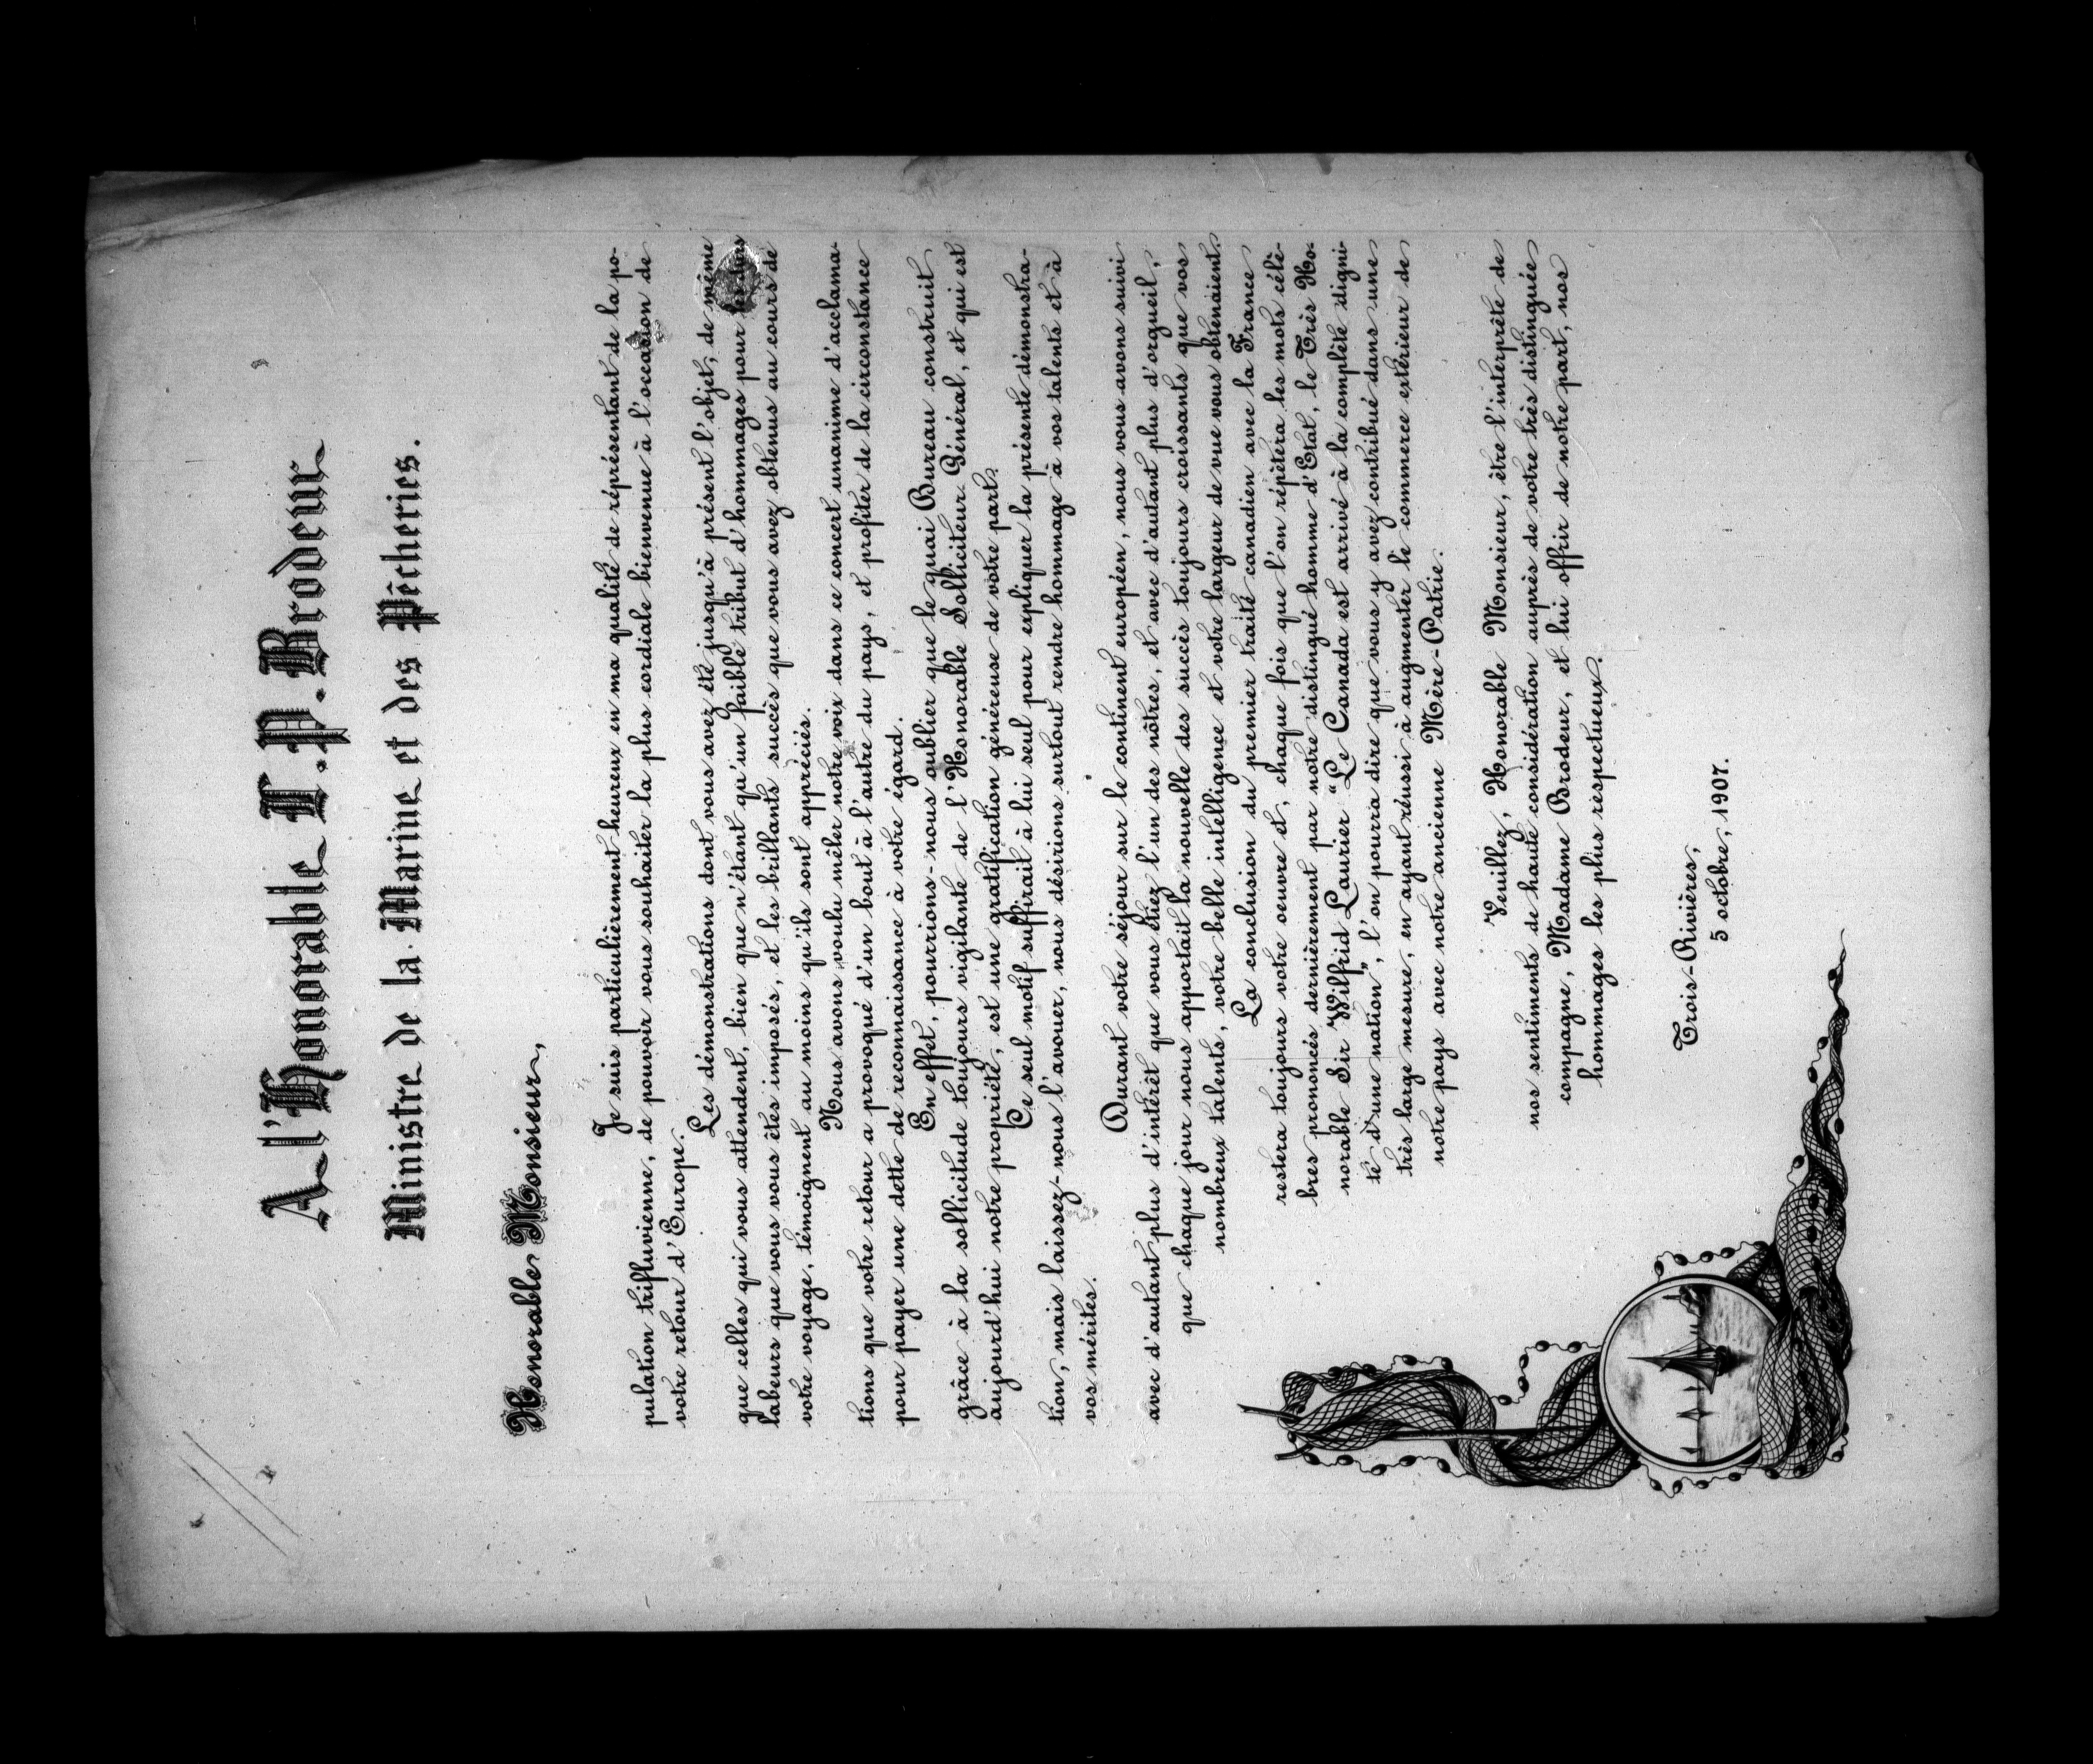 A l'Honorable L.P. Brodeur
Ministre de la Marine et des Pêcheries.
Honorable Monsieur,
Je suis particulièrement heureux en ma qualité de réprésentant de la po-
pulation trifluvienne, de pouvoir vous souhaiter la plus cordiale bienvenue à l'occasion de
votre retour d'Europe.
Les démonstrations dont vous avez été jusqu'à présent l'objet, de même
que celles qui vous attendent, bien que n'étant qu'un faible tribut d'hommages pour les durs
labeurs que vous vous êtes imposés, et les brillants succès que vous avez obtenus au cours de
votre voyage, témoignent au moins qu'ils sont appréciés.
Nous avons voulu mêler notre voix dans ce concert unanime d'acclama-
tions que votre retour a provoqué d'un bout à l'autre du pays, et profiter de la circonstance
pour payer une dette de reconnaissance à votre égard.
En effet, pourrions-nous oublier que le quai Bureau construit
grâce à la sollicitude toujours vigilante de l'Honorable Solliciteur-Général, et qui est
aujourd'hui notre propriété, est une gratification généreuse de votre part.
Ce seul motif suffirait à lui seul pour expliquer la présente démonstra-
tion, mais laissez-nous l'avouer, nous désirions surtout rendre hommage à vos talents et à
vos mérites.
Durant votre séjour sur le continent européen, nous vous avons suivi
avec d'autant plus d'intérêt que vous étiez l'un des nôtres, et avec d'autant plus d'orgueil,
que chaque jour nous apportait la nouvelle des succès toujours croissants que vos
nombreux talents, votre belle intelligence et votre largeur de vue vous obtenaient.
La conclusion du premier traité canadien avec la France
restera toujours votre oeuvre et, chaque fois que l'on répètera les mots célè-
bres prononcés dernièrement par notre distingué homme d'Etat, le Très Ho-
norable Sir Wilfrid Laurier "Le Canada est arrivé à la complète digni-
té d'une nation", l'on pourra dire que vous y avez contribué dans une
très large mesure, en ayant réussi à augmenter le commerce extérieur de
notre pays avec notre ancienne Mère-Patrie.
Veuillez, Honorable Monsieur, être l'interprète de
nos sentiments de haute considération auprès de votre très distinguée
compagne, Madame Brodeur, et lui offrir de notre part, nos
hommages les plus respectueux.
Trois-Rivières,
5 octobre, 1907.